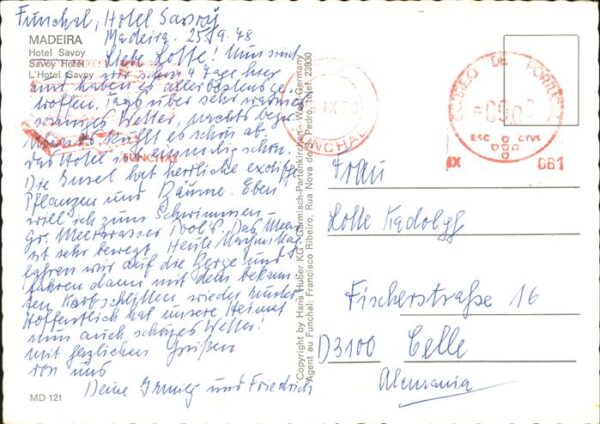 Funchal, Hotel Savoy
MADEIRA
Madeira. 25/9.78
Hotel Savoy
Savoy Hotel
L'Hotel Savoy
Liebe Lotte! Nun sind
wir schon 4 Tage hier
und haben es allerbestens ge-
troffen. Tags über sehr warmes
sonniges Wetter, nachts
kühlt es schön ab.
Das Hotel ist einmalig schön.
Die Insel hat herrliche exotische
Pflanzen und Bäume. Eben
will ich zum Schwimmen
gr. Meerwasser Pool's. Das Meer
ist sehr bewegt. Heute
fahren wir auf die Berge und
fahren dann mit dem bekann-
ten Korbschlitten wieder runter
Hoffentlich hat unsere Heimat
nun auch schönes Wetter!
mit herzlichen Grüßen
von uns
Deine und Friedrich
MD 121
Copyright by Hans Huber KG - Garmisch-Partenkirchen - West Germany
Agent au Funchal: Francisco Ribeiro, Rua Nova de S. Pedro, telef. 23930
FUNCHAL
FUNCHAL
CORREIO DE PORTUGAL
ESC
IX
061
Frau
Lotte Kadolff
Fischerstraße 16
D3100 Celle
Alemania